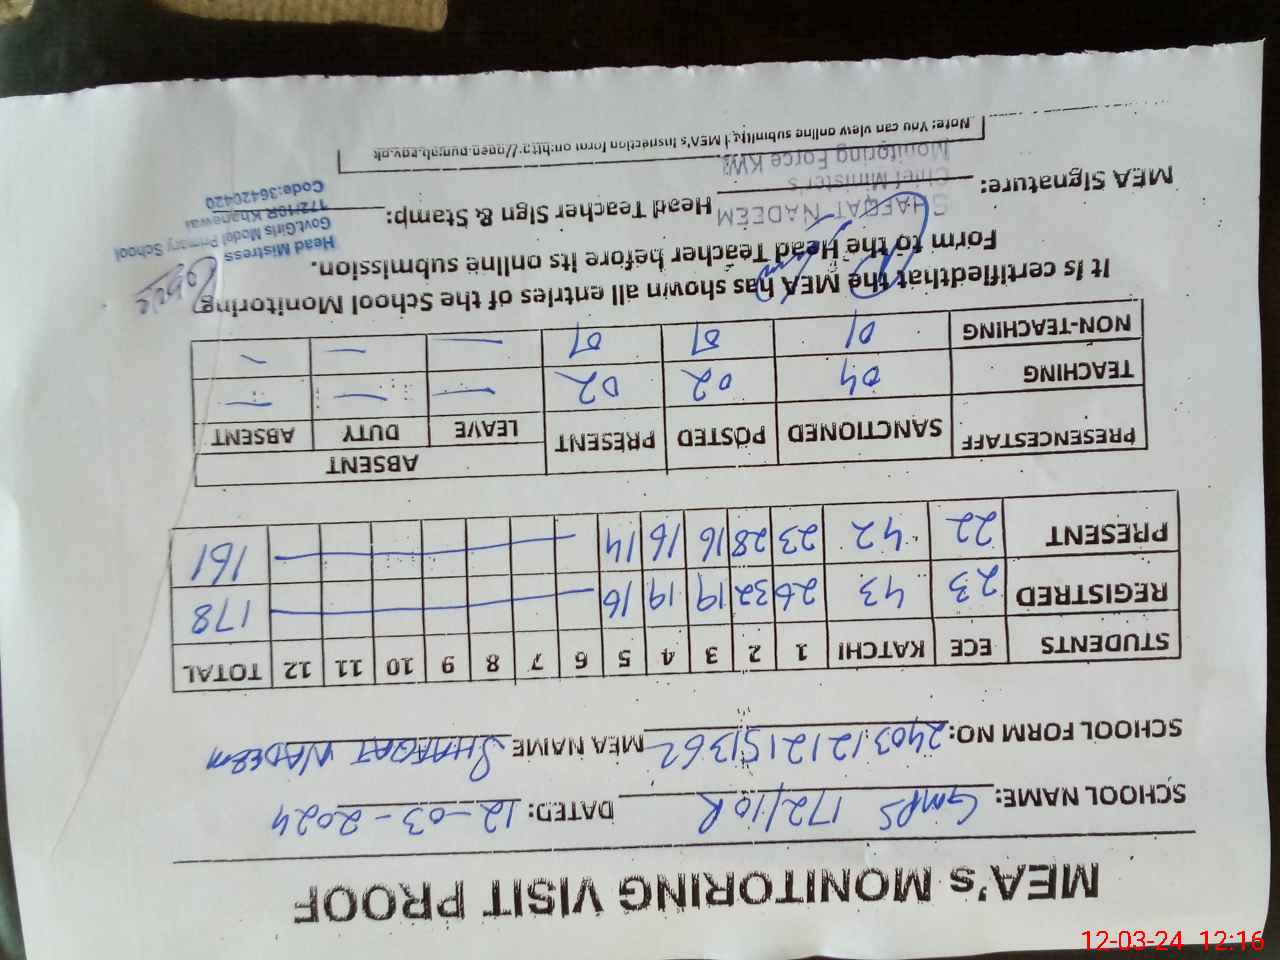 MEA's MONITORING VISIT PROOF
SCHOOL NAME: GMPS 172/10R DATED: 12-03-2024
SCHOOL FORM NO: 24031212151362 MEA NAME SHAFQAT NADEEM
STUDENTS ECE KATCHI 1 2 3 4 5 6 7 8 9 10 11 12 TOTAL
REGISTRED 23 43 26 32 19 19 16 178
PRESENT 22 42 23 28 16 16 14 161
PRESENCESTAFF SANCTIONED POSTED PRESENT ABSENT
LEAVE DUTY ABSENT
TEACHING 04 02 02 — — —
NON-TEACHING 01 01 01 — — —
It is certifiedthat the MEA has shown all entries of the School Monitoring
Form to the Head Teacher before its online submission.
MEA Signature: Head Teacher Sign & Stamp:
SHAFQAT NADEEM
Chief Minister's
Monitoring Force KWL
Head Mistress
Govt.Girls Model Primary School
172/10R Khanewal
Code:36420420
Note: You can view online submitted MEA's inspection form on:http://open.punjab.gov.pk
12-03-24 12:16